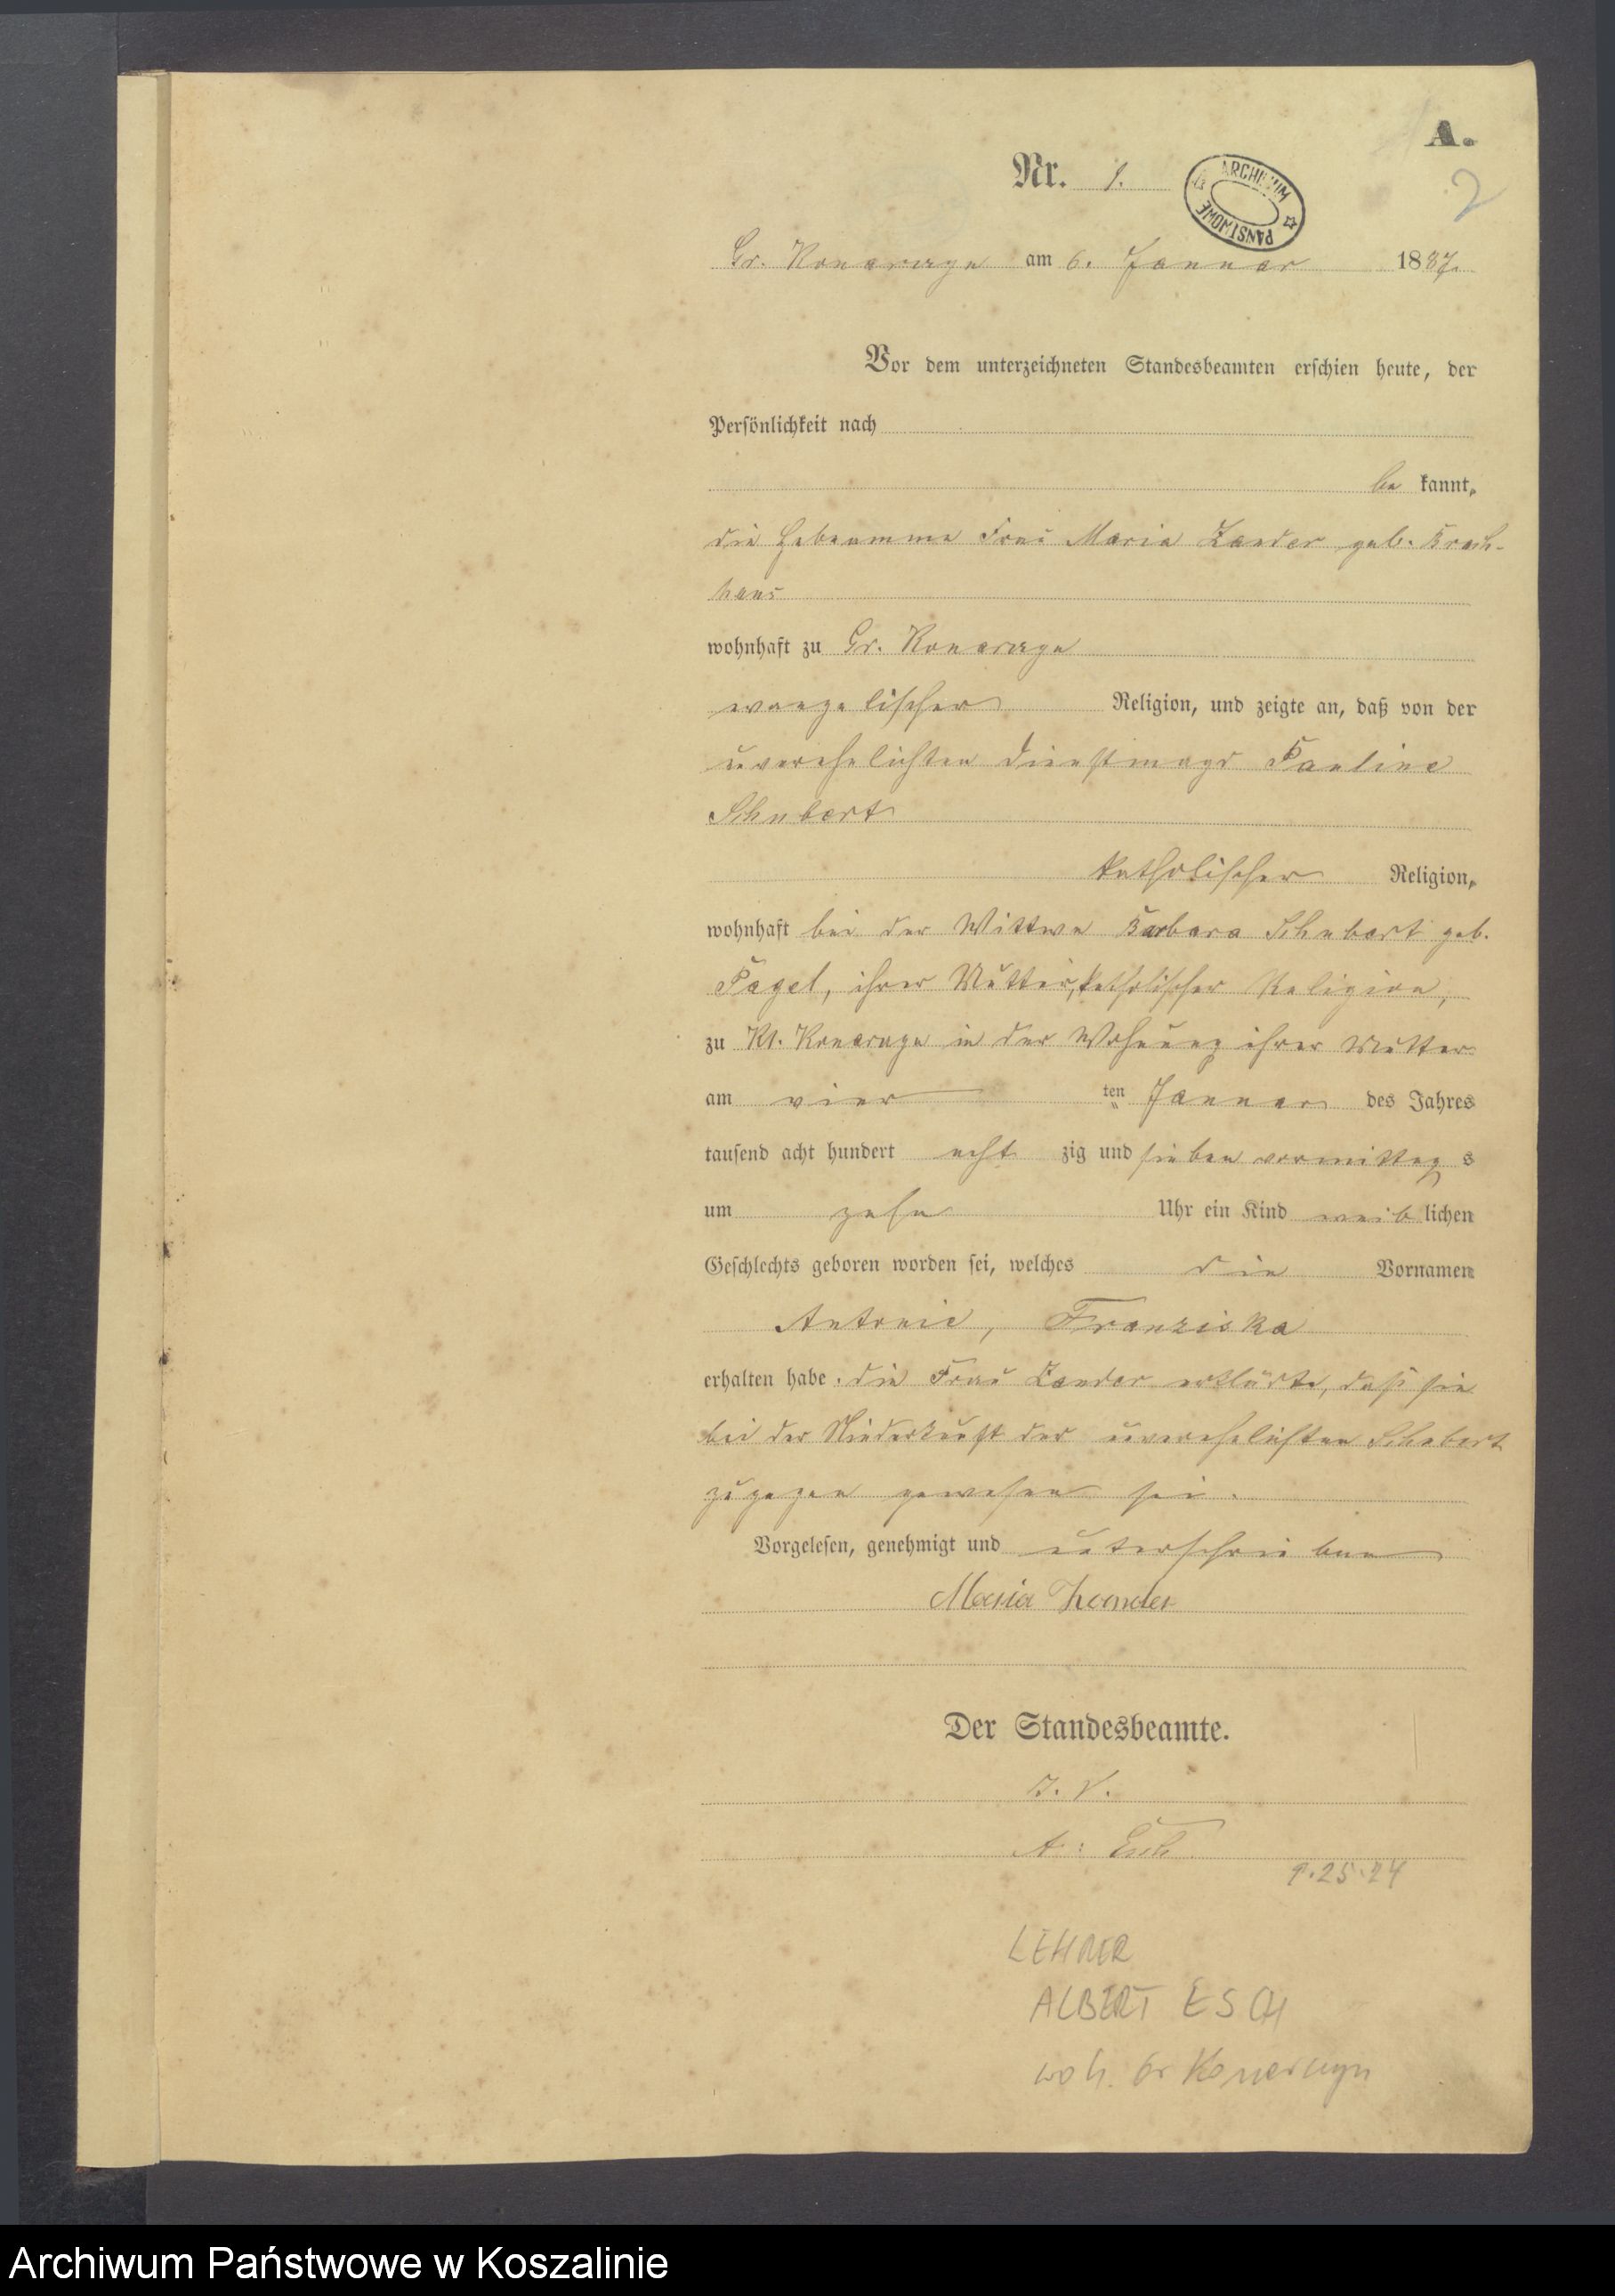 A.
Nr. 1.
ARCHIWUM PAŃSTWOWE
2
Gr. Konarzyn am 6. Januar 1887.
Vor dem unterzeichneten Standesbeamten erschien heute, der
Persönlichkeit nach
be kannt,
die Hebeamme Frau Maria Zander geb. Brach-
haus
wohnhaft zu Gr. Konarzyn
evangelischer Religion, und zeigte an, daß von der
unverehelichten Dienstmagd Pauline
Schubert
katholischer Religion,
wohnhaft bei der Wittwe Barbara Schubert geb.
Pagel, ihrer Mutter, katholischer Religion,
zu Kl. Konarzyn in der Wohnung ihrer Mutter
am vier ten Januar des Jahres
tausend acht hundert acht zig und sieben vormittag s
um zehn Uhr ein Kind weib lichen
Geschlechts geboren worden sei, welches die Vornamen
Antonie, Franziska
erhalten habe. die Frau Zander erklärte, daß sie
bei der Niederkunft der unverehelichten Schubert
zugegen gewesen sei.
Vorgelesen, genehmigt und unterschrieben
Maria Zander
Der Standesbeamte.
I. V.
A. Esch.
9.25.24
LEHRER
ALBERT ESCH
woh. Gr Konarzyn
Archiwum Państwowe w Koszalinie